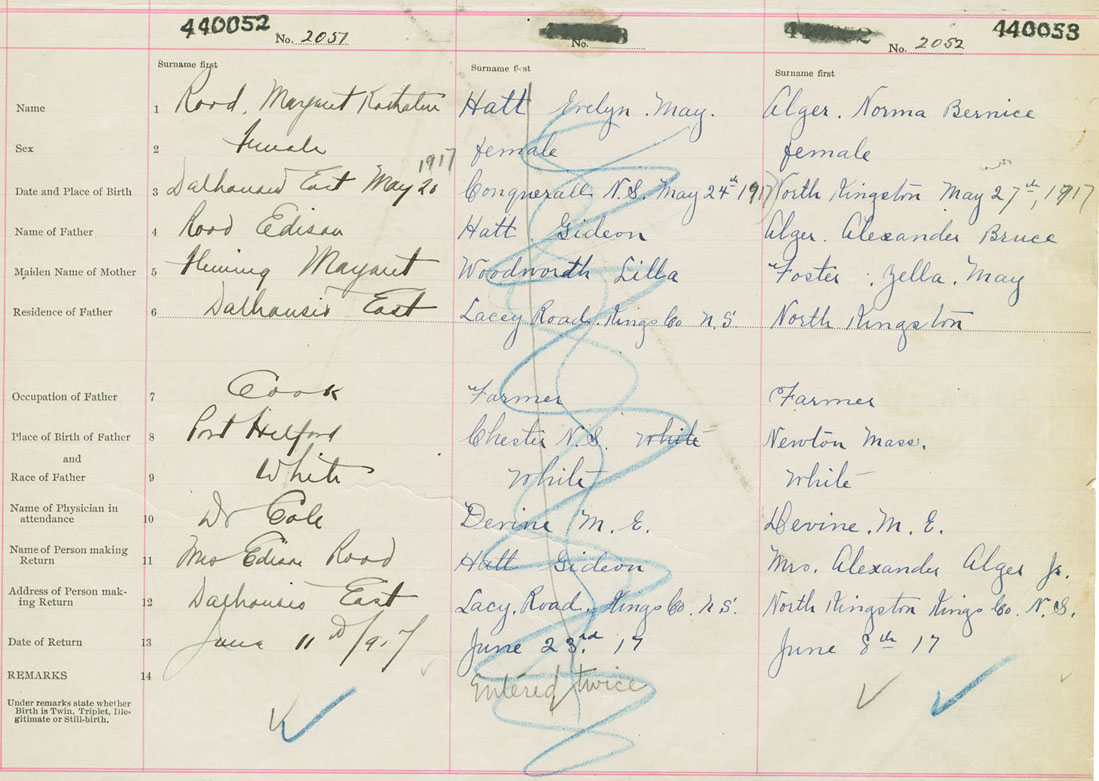 440052
No. 2051
No.
No. 2052
440053
Surname first
Surname first
Surname first
Name 1 Rood, Margaret Hatt Evelyn May. Alger. Norma Bernice
Sex 2 Female female female
1917
Date and Place of Birth 3 Dalhousie East May 20 Conquerall N.S. May 24th 1917 North Kingston May 27th, 1917
Name of Father 4 Rood Edison Hatt Gideon Alger. Alexander Bruce
Maiden Name of Mother 5 Fleming Margaret Woodworth Lilla Foster. Zella. May
Residence of Father 6 Dalhousie East Lacey Road. Kings Co N.S. North Kingston
Occupation of Father 7 Cook Farmer Farmer
Place of Birth of Father 8 Port Chester N.S. White Newton Mass.
and
Race of Father 9 White White White
Name of Physician in
attendance 10 Dr Cole Devine M. E. Devine. M. E.
Name of Person making
Return 11 Mrs Edison Rood Hatt Gideon Mrs. Alexander Alger Jr.
Address of Person mak-
ing Return 12 Dalhousie East Lacy, Road, Kings Co. N.S. North Kingston Kings Co. N.S.
Date of Return 13 June 11 1917 June 23rd 17 June 8th 17
REMARKS 14 Entered twice
Under remarks state whether
Birth is Twin, Triplet, Ille-
gitimate or Still-birth.